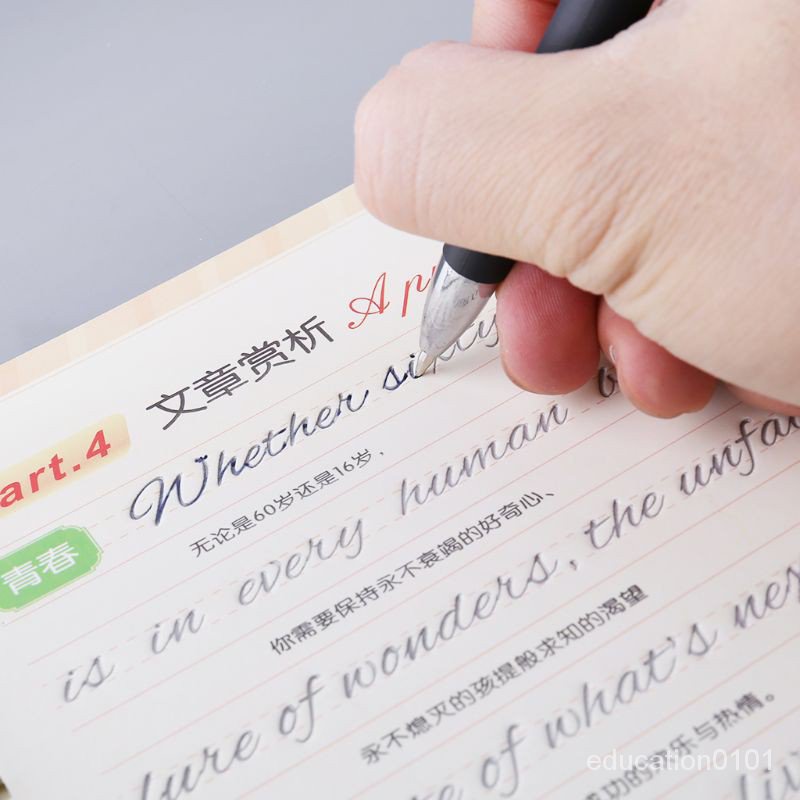 art.4 文章赏析 Ap
青春
Whether sixty
无论是60岁还是16岁，
is in every human
你需要保持永不衰竭的好奇心、
lure of wonders, the unfai
永不熄灭的孩提般求知的渴望
of what's nex
成功的 乐与热情。
education0101